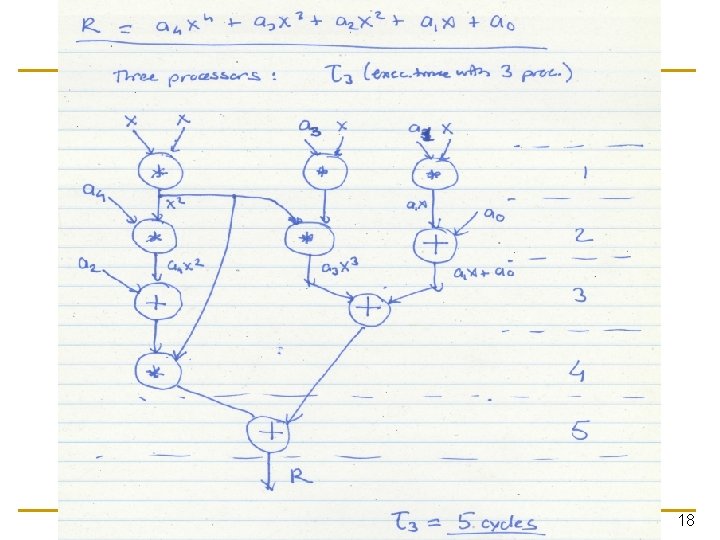 R = a₄x⁴ + a₃x³ + a₂x² + a₁x + a₀
Three processors : T₃ (exec. time with 3 proc.)
x x a₃ x a₁ x
* * * 1
a₄ x² a₁x a₀
* * + 2
a₂ a₄x² a₃x³ a₁x + a₀
+ + 3
* 4
+ 5
R
T₃ = 5 cycles
18